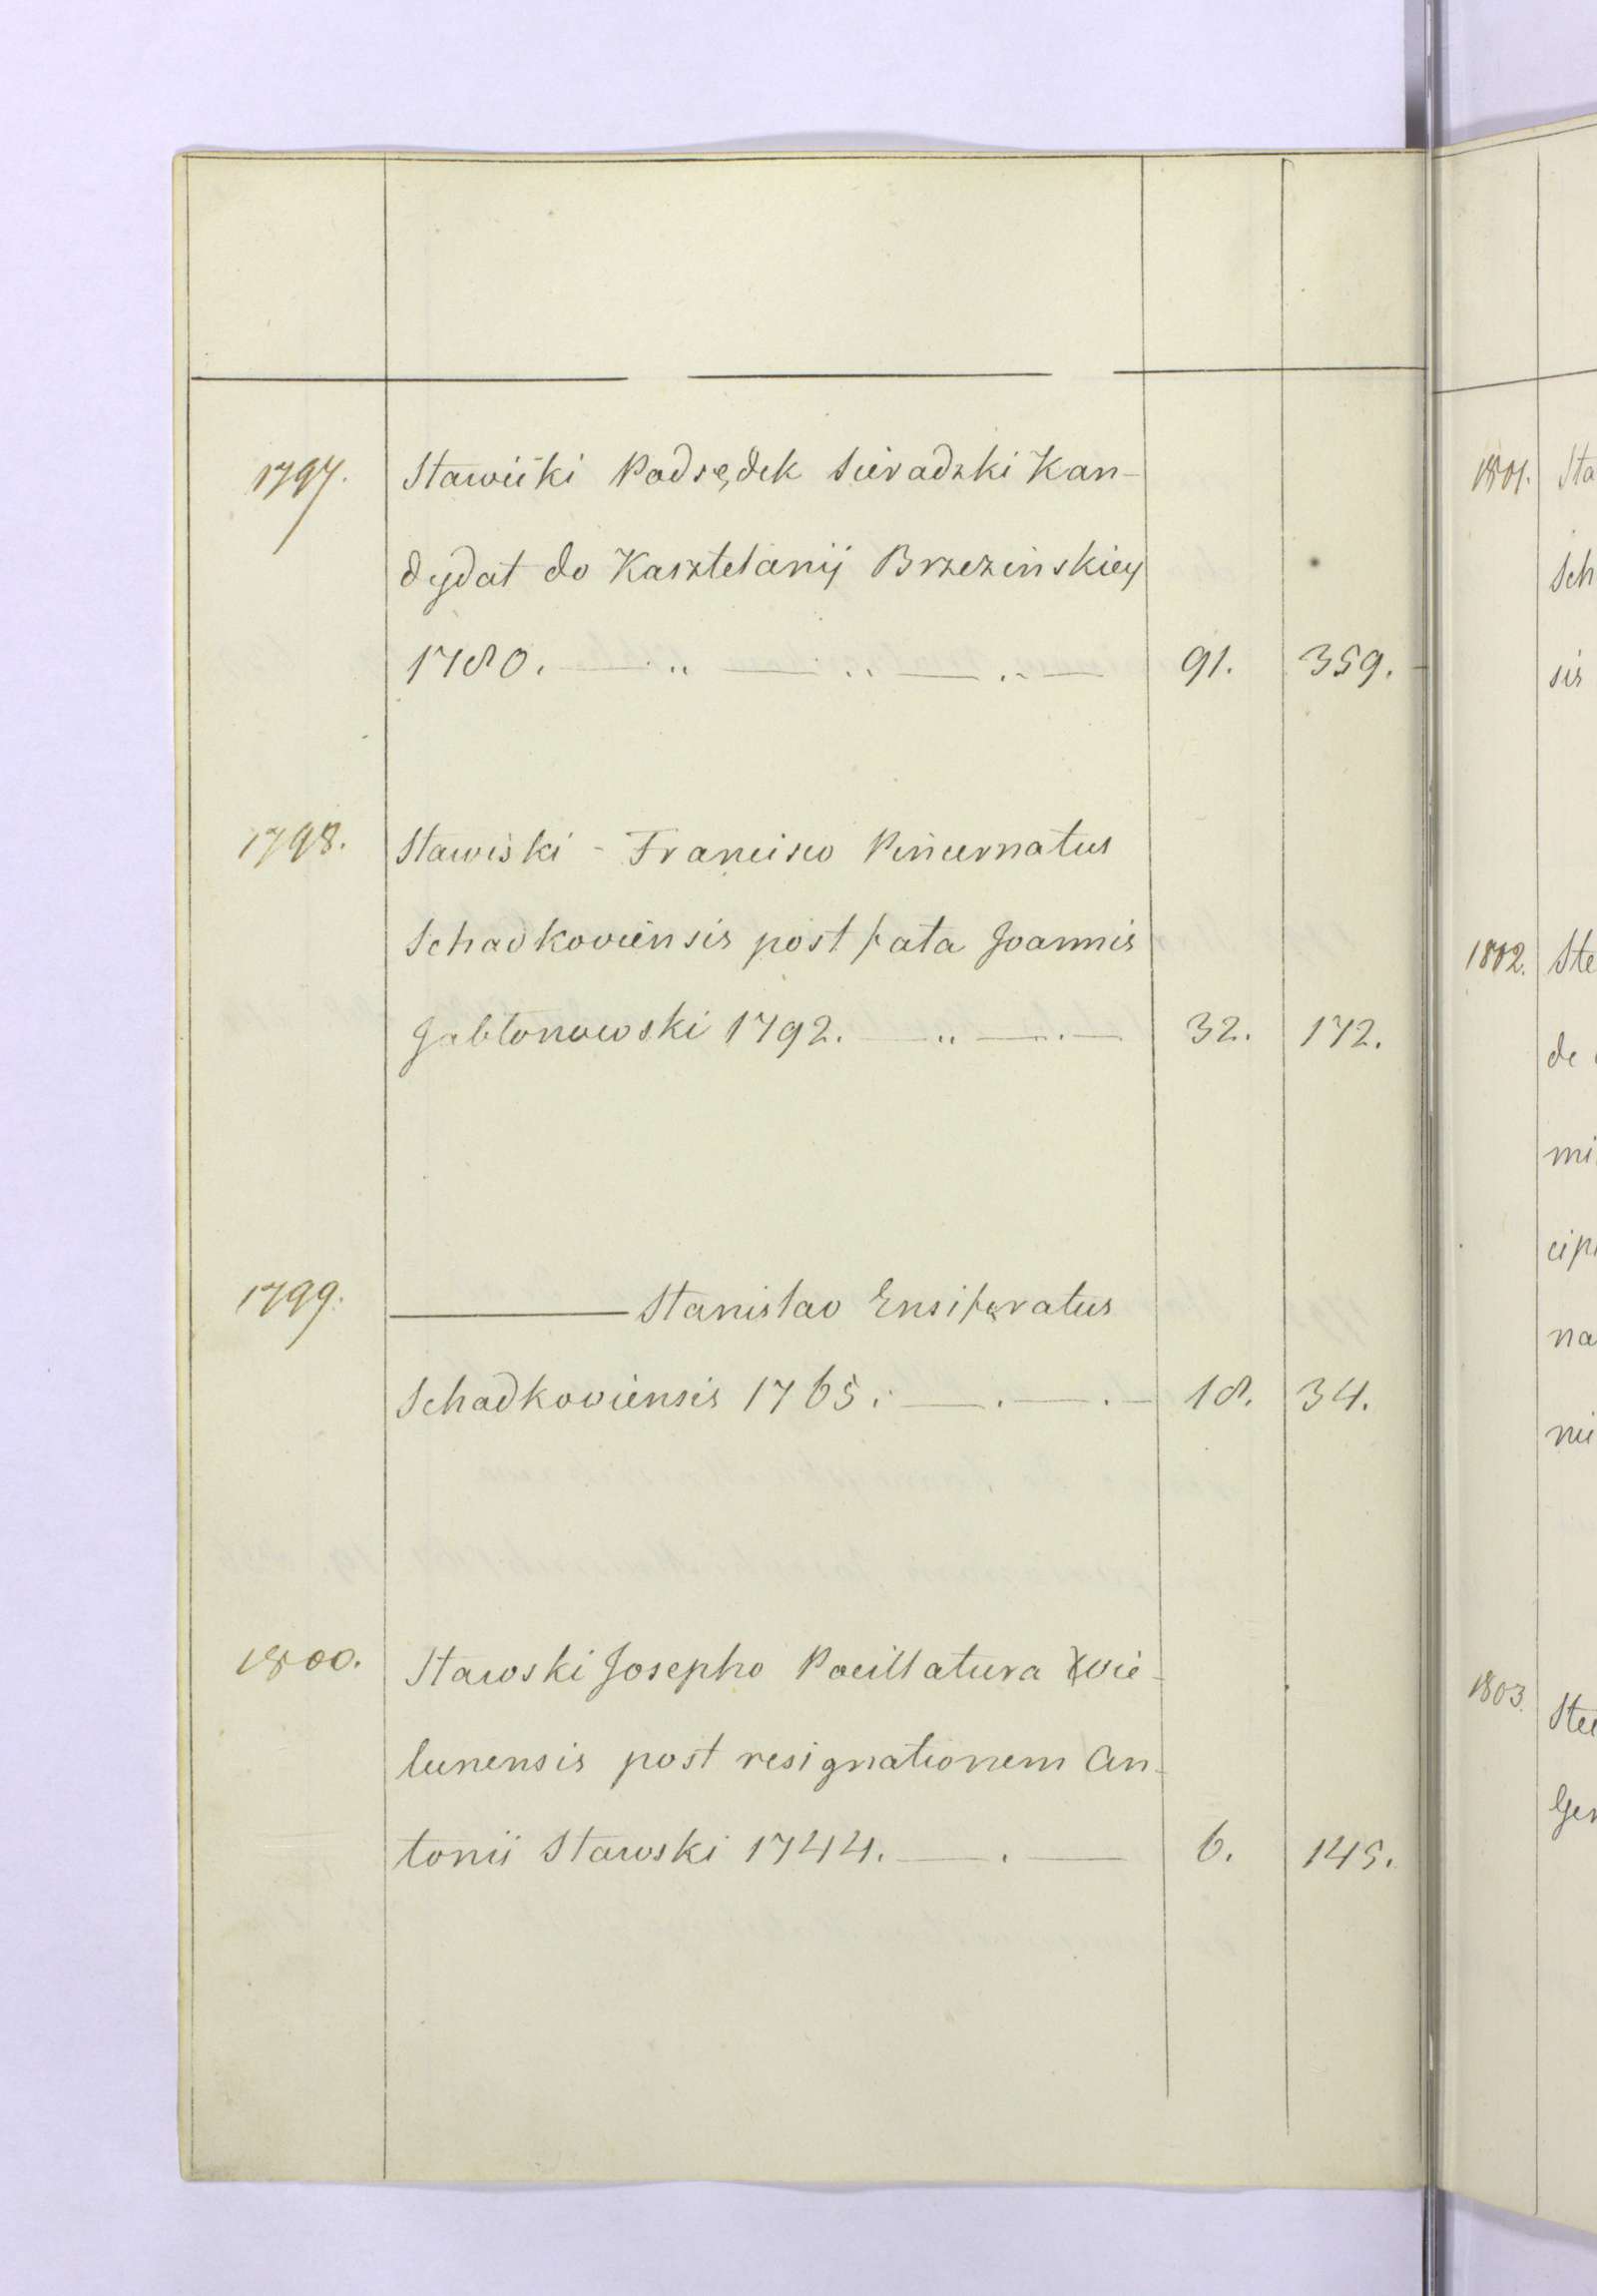 1797. Stawiski Podsędek Sieradzki Kan-
dydat do Kasztelanij Brzezinskiey
1780. — .. — .. — .. — 91. 359.
1798. Stawiski - Francisco Pincernatus
Schadkoviensis post fata Joannis
Jabłonowski 1792. — .. — . — 32. 172.
1799. — Stanislao Ensiferatus
Schadkoviensis 1765. — . — . — 18. 34.
1800. Stawski Josepho Pocillatura Wie-
lunensis post resignationem An-
tonii Stawski 1744. — . — 6. 145.
1801. Sta
Sch
sis
1802. Ste
de
mi
cip
na
ni
1803. Ste
Gen